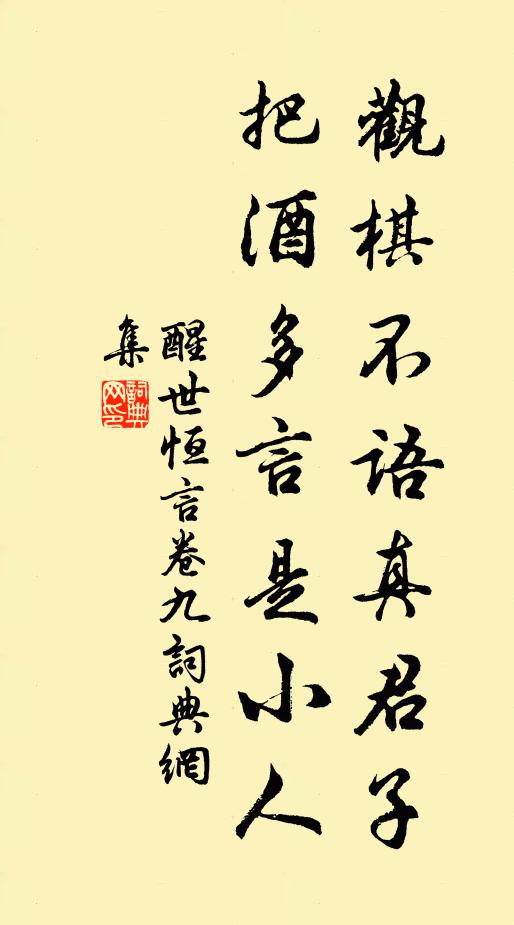 觀棋不語真君子
把酒多言是小人
醒世恒言卷九詞典網
集
詞典網印